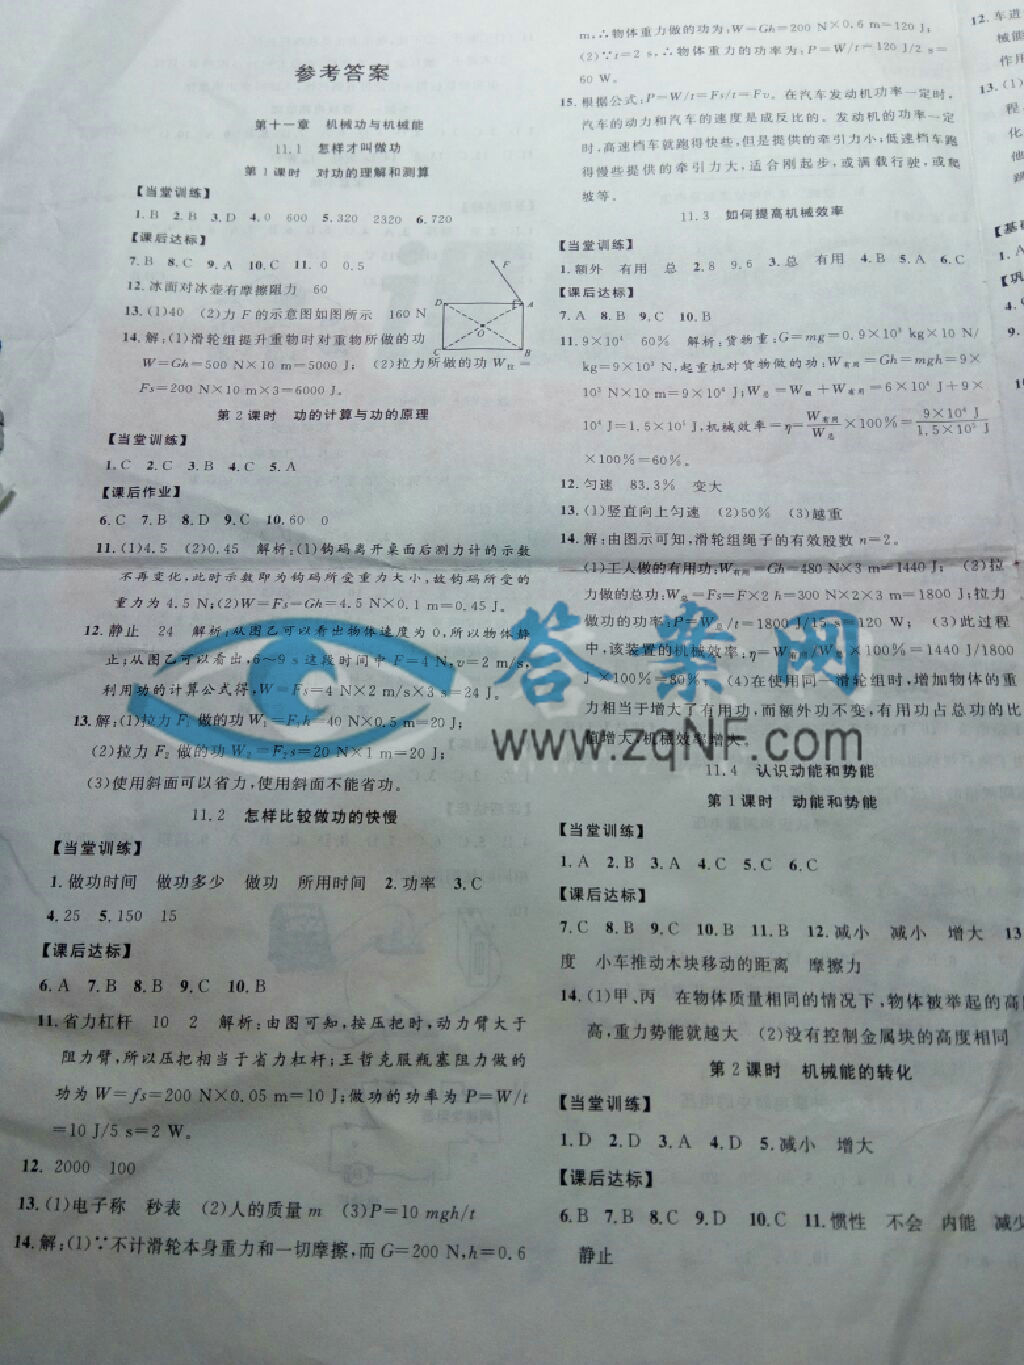 参考答案
第十一章 机械功与机械能
11.1 怎样才叫做功
第1课时 对功的理解和测算
【当堂训练】
1.B 2.B 3.D 4.0 600 5.320 2320 6.720
【课后达标】
7.B 8.C 9.A 10.C 11.0 0.5
12.冰面对冰壶有摩擦阻力 60
13.(1)40 (2)力F的示意图如图所示 160 N
14.解:(1)滑轮组提升重物时对重物所做的功
W=Gh=500 N×10 m=5000 J; (2)拉力所做的功W拉=
Fs=200 N×10 m×3=6000 J.
F
D A
O
C B
第2课时 功的计算与功的原理
【当堂训练】
1.C 2.C 3.B 4.C 5.A
【课后作业】
6.C 7.B 8.D 9.C 10.60 0
11.(1)4.5 (2)0.45 解析:(1)钩码离开桌面后测力计的示数
不再变化,此时示数即为钩码所受重力大小,故钩码所受的
重力为4.5 N;(2)W=Fs=Gh=4.5 N×0.1 m=0.45 J.
12.静止 24 解析:从图乙可以看出物体速度为0,所以物体静
止;从图乙可以看出,6~9 s这段时间中F=4 N,v=2 m/s,
利用功的计算公式得,W=Fs=4 N×2 m/s×3 s=24 J.
13.解:(1)拉力F₁做的功W₁=F₁h=40 N×0.5 m=20 J;
(2)拉力F₂做的功W₂=F₂s=20 N×1 m=20 J;
(3)使用斜面可以省力,使用斜面不能省功.
11.2 怎样比较做功的快慢
【当堂训练】
1.做功时间 做功多少 做功 所用时间 2.功率 3.C
4.25 5.150 15
【课后达标】
6.A 7.B 8.B 9.C 10.B
11.省力杠杆 10 2 解析:由图可知,按压把时,动力臂大于
阻力臂,所以压把相当于省力杠杆;王哲克服瓶塞阻力做的
功为W=fs=200 N×0.05 m=10 J;做功的功率为P=W/t
=10 J/5 s=2 W.
12.2000 100
13.(1)电子称 秒表 (2)人的质量m (3)P=10 mgh/t
14.解:(1)∵不计滑轮本身重力和一切摩擦,而G=200 N,h=0.6
m,∴物体重力做的功为:W=Gh=200 N×0.6 m=120 J;
(2)∵t=2 s,∴物体重力的功率为:P=W/t=120 J/2 s=
60 W.
15.根据公式:P=W/t=Fs/t=Fv。在汽车发动机功率一定时,
汽车的动力和汽车的速度是成反比的。发动机的功率一定
时,高速档车就跑得快些,但是提供的牵引力小;低速档车跑
得慢些提供的牵引力大,适合刚起步,或满载行驶,或爬
坡等。
11.3 如何提高机械效率
【当堂训练】
1.额外 有用 总 2.8 9.6 3.总 有用 4.B 5.A 6.C
【课后达标】
7.A 8.B 9.C 10.B
11.9×10⁴ 60% 解析:货物重:G=mg=0.9×10³ kg×10 N/
kg=9×10³ N,起重机对货物做的功:W有用=Gh=mgh=9×
10³ N×10 m=9×10⁴ J;W总=W额+W有用=6×10⁴ J+9×
10⁴ J=1.5×10⁵ J,机械效率=η=W有用/W总×100%=9×10⁴ J/1.5×10⁵ J
×100%=60%。
12.匀速 83.3% 变大
13.(1)竖直向上匀速 (2)50% (3)越重
14.解:由图示可知,滑轮组绳子的有效股数n=2。
(1)工人做的有用功:W有用=Gh=480 N×3 m=1440 J; (2)拉
力做的总功:W总=Fs=F×2 h=300 N×2×3 m=1800 J;拉力
做功的功率:P=W总/t=1800 J/15 s=120 W; (3)此过程
中,该装置的机械效率:η=W有用/W总×100%=1440 J/1800
J×100%=80%; (4)在使用同一滑轮组时,增加物体的重
力相当于增大了有用功,而额外功不变,有用功占总功的比
值增大,机械效率增大。
11.4 认识动能和势能
第1课时 动能和势能
【当堂训练】
1.A 2.B 3.A 4.C 5.C 6.C
【课后达标】
7.C 8.B 9.C 10.B 11.B 12.减小 减小 增大 13
度 小车推动木块移动的距离 摩擦力
14.(1)甲、丙 在物体质量相同的情况下,物体被举起的高
高,重力势能就越大 (2)没有控制金属块的高度相同
第2课时 机械能的转化
【当堂训练】
1.D 2.D 3.A 4.D 5.减小 增大
【课后达标】
6.B 7.B 8.C 9.D 10.C 11.惯性 不会 内能 减少
静止
12.车道
械能
作用
13.(1)
程
化
他
【基
1.A
【巩
9.
答案网
www.zqNF.com